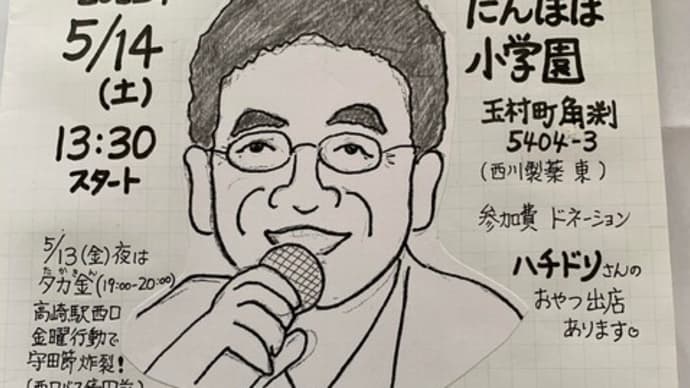 5/14
(土)
13:30
スタート
5/13(金)夜は
たかきん
タカ金(19:00-20:00)
高崎駅西口
金曜行動で
守田節炸裂!
たんぽぽ
小学園
玉村町角渕
5404-3
(西川製薬 東)
参加費 ドネーション
ハチドリさんの
おやつ出店
あります